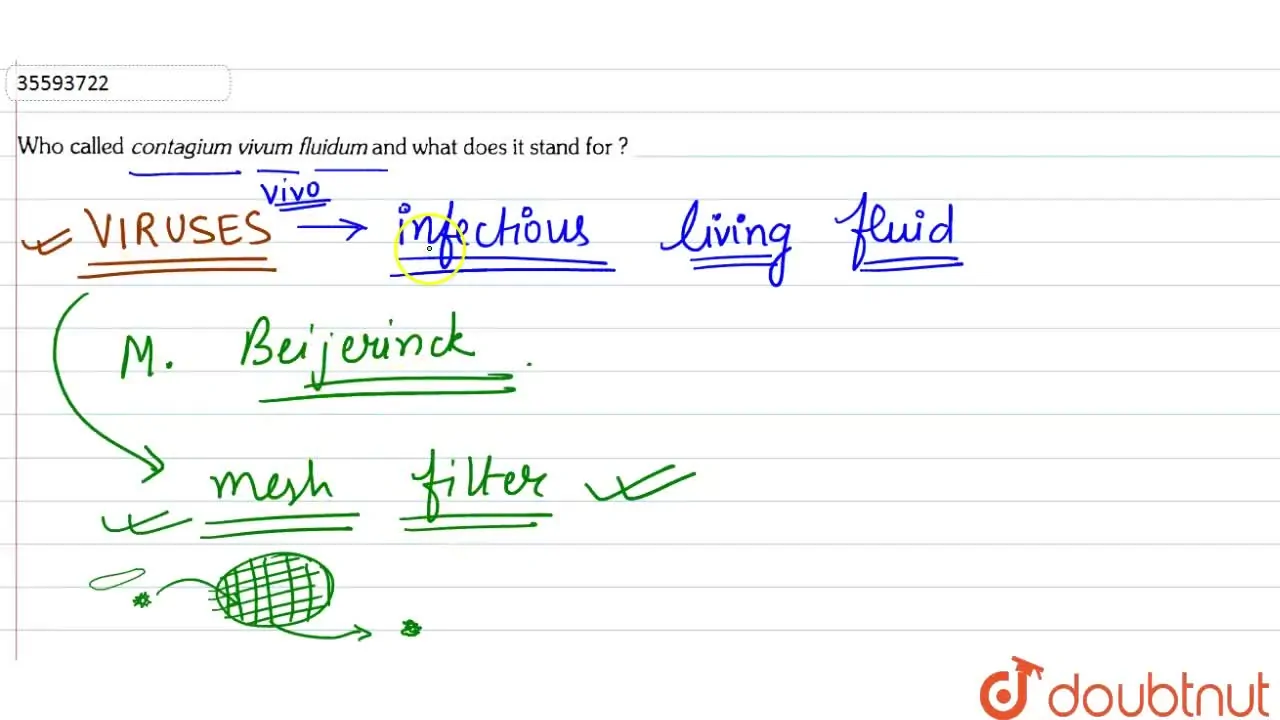 35593722
Who called contagium vivum fluidum and what does it stand for ?
vivo
VIRUSES → infectious living fluid
M. Beijerinck .
mesh filter
doubtnut